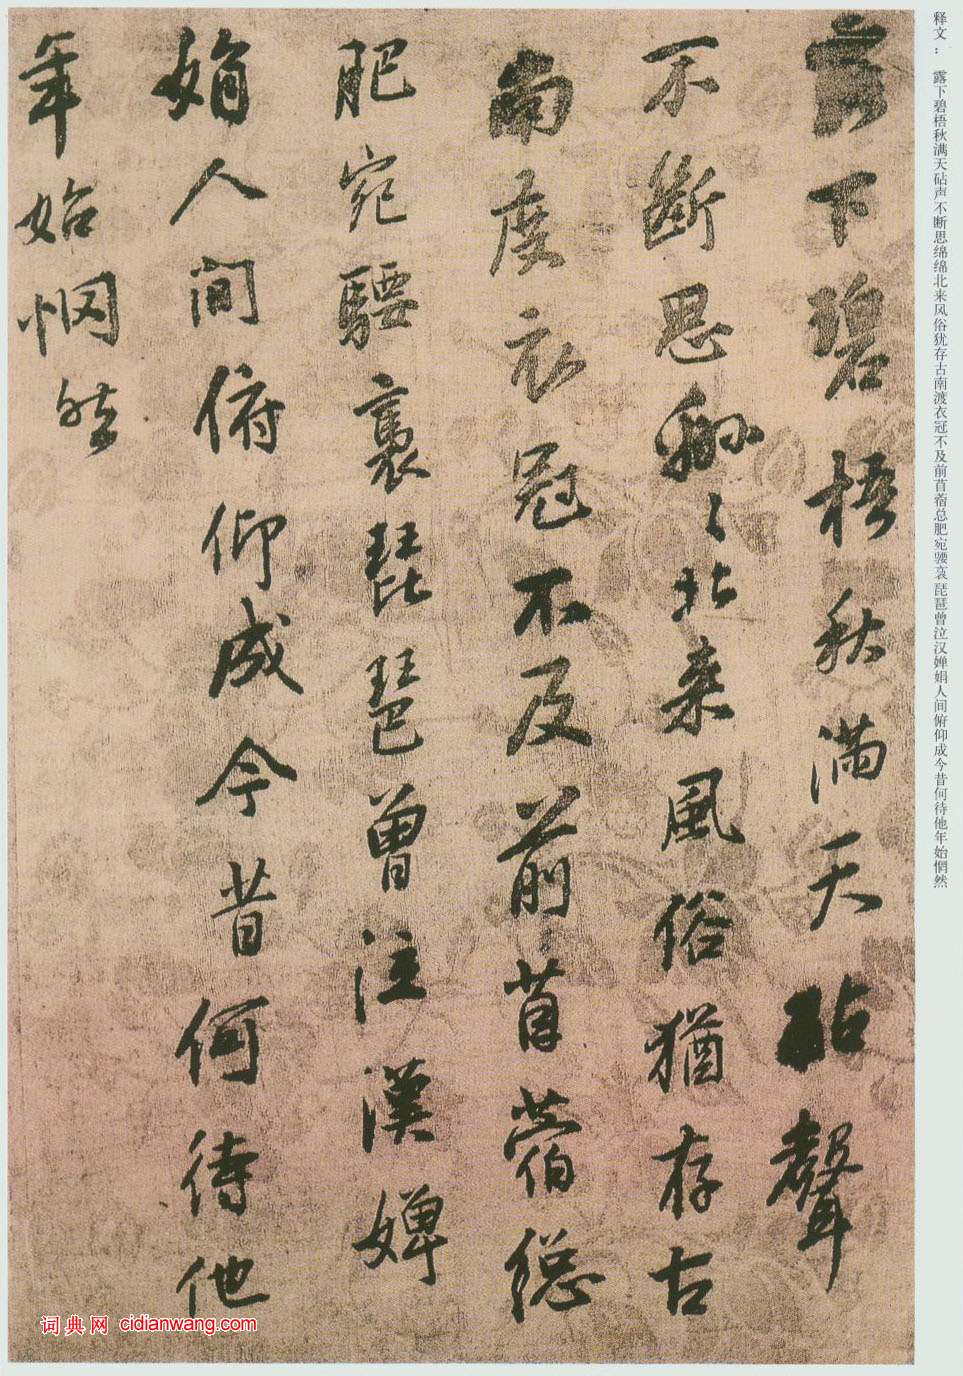 释文： 露下碧梧秋满天砧声不断思绵绵北来风俗犹存古南渡衣冠不及前苜蓿总肥宛骙袅琵琶曾泣汉婵娟人间俯仰成今昔何待他年始惘然
露下碧梧秋滿天砧聲
不斷思緜〻北來風俗猶存古
南度衣冠不及前苜蓿總
肥宛騕褭琵琶曾泣漢嬋
娟人間俯仰成今昔何待他
年始惘然
词典网 cidianwang.com